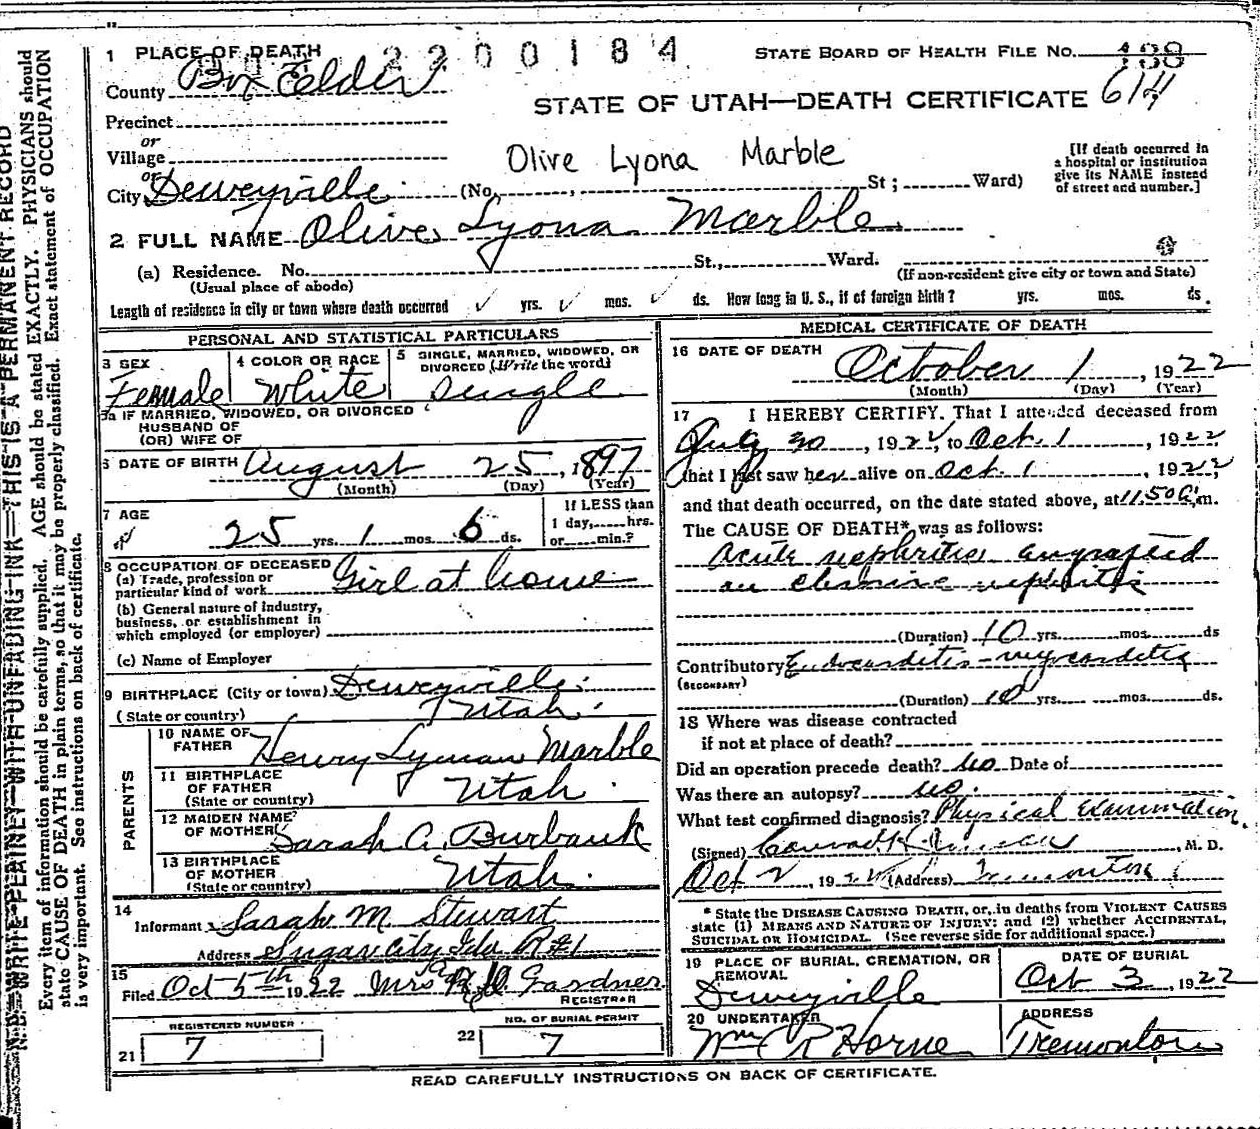 1 PLACE OF DEATH 2200184 STATE BOARD OF HEALTH FILE NO.
County Box Elder
STATE OF UTAH—DEATH CERTIFICATE 614
Precinct
or
Village
Olive Lyona Marble
[If death occurred in
a hospital or institution
give its NAME instead
of street and number.]
or
City Deweyville (No. , St ; Ward)
2 FULL NAME Olive Lyona Marble
(a) Residence. No. St., Ward.
(Usual place of abode) (If non-resident give city or town and State)
Length of residence in city or town where death occurred ✓ yrs. ✓ mos. ✓ ds. How long in U. S., if of foreign birth? yrs. mos. ds.
PERSONAL AND STATISTICAL PARTICULARS
3 SEX
Female
4 COLOR OR RACE
White
5 SINGLE, MARRIED, WIDOWED, OR
DIVORCED (Write the word)
Single
5a IF MARRIED, WIDOWED, OR DIVORCED
HUSBAND OF
(OR) WIFE OF
6 DATE OF BIRTH August 25, 1897
(Month) (Day) (Year)
7 AGE
25 yrs. 1 mos. 6 ds.
If LESS than
1 day, hrs.
or min.?
8 OCCUPATION OF DECEASED
(a) Trade, profession or
particular kind of work Girl at home
(b) General nature of industry,
business, or establishment in
which employed (or employer)
(c) Name of Employer
9 BIRTHPLACE (City or town) Deweyville
(State or country) Utah
PARENTS
10 NAME OF
FATHER Henry Lyman Marble
11 BIRTHPLACE
OF FATHER
(State or country) Utah
12 MAIDEN NAME
OF MOTHER Sarah A. Burbank
13 BIRTHPLACE
OF MOTHER
(State or country) Utah
14
Informant Sarah M Stewart
Address Sugar City Ida R#1
15
Filed Oct 5th 1922 Mrs Gardner
REGISTRAR
REGISTERED NUMBER
21 7
NO. OF BURIAL PERMIT
22 7
MEDICAL CERTIFICATE OF DEATH
16 DATE OF DEATH
October 1, 1922
(Month) (Day) (Year)
17 I HEREBY CERTIFY, That I attended deceased from
July 30, 1922, to Oct. 1, 1922
that I last saw her alive on Oct. 1, 1922
and that death occurred, on the date stated above, at 11.50 a.m.
The CAUSE OF DEATH*, was as follows:
Acute nephritis engrafted
on chronic nephritis
(Duration) 10 yrs. mos. ds
Contributory Endocarditis - myocarditis
(SECONDARY)
(Duration) 10 yrs. mos. ds.
18 Where was disease contracted
if not at place of death?
Did an operation precede death? no Date of
Was there an autopsy? no.
What test confirmed diagnosis? Physical Examination.
(Signed) , M. D.
Oct 2, 1922 (Address) Tremonton
* State the DISEASE CAUSING DEATH, or, in deaths from VIOLENT CAUSES
state (1) MEANS AND NATURE OF INJURY; and (2) whether ACCIDENTAL,
SUICIDAL OR HOMICIDAL. (See reverse side for additional space.)
19 PLACE OF BURIAL, CREMATION, OR
REMOVAL
Deweyville
DATE OF BURIAL
Oct 3, 1922
20 UNDERTAKER
Wm R Horne
ADDRESS
Tremonton
READ CAREFULLY INSTRUCTIONS ON BACK OF CERTIFICATE.
N. B. WRITE PLAINLY—WITH UNFADING INK—THIS IS A PERMANENT RECORD
Every item of information should be carefully supplied. AGE should be stated EXACTLY. PHYSICIANS should
state CAUSE OF DEATH in plain terms, so that it may be properly classified. Exact statement of OCCUPATION
is very important. See instructions on back of certificate.